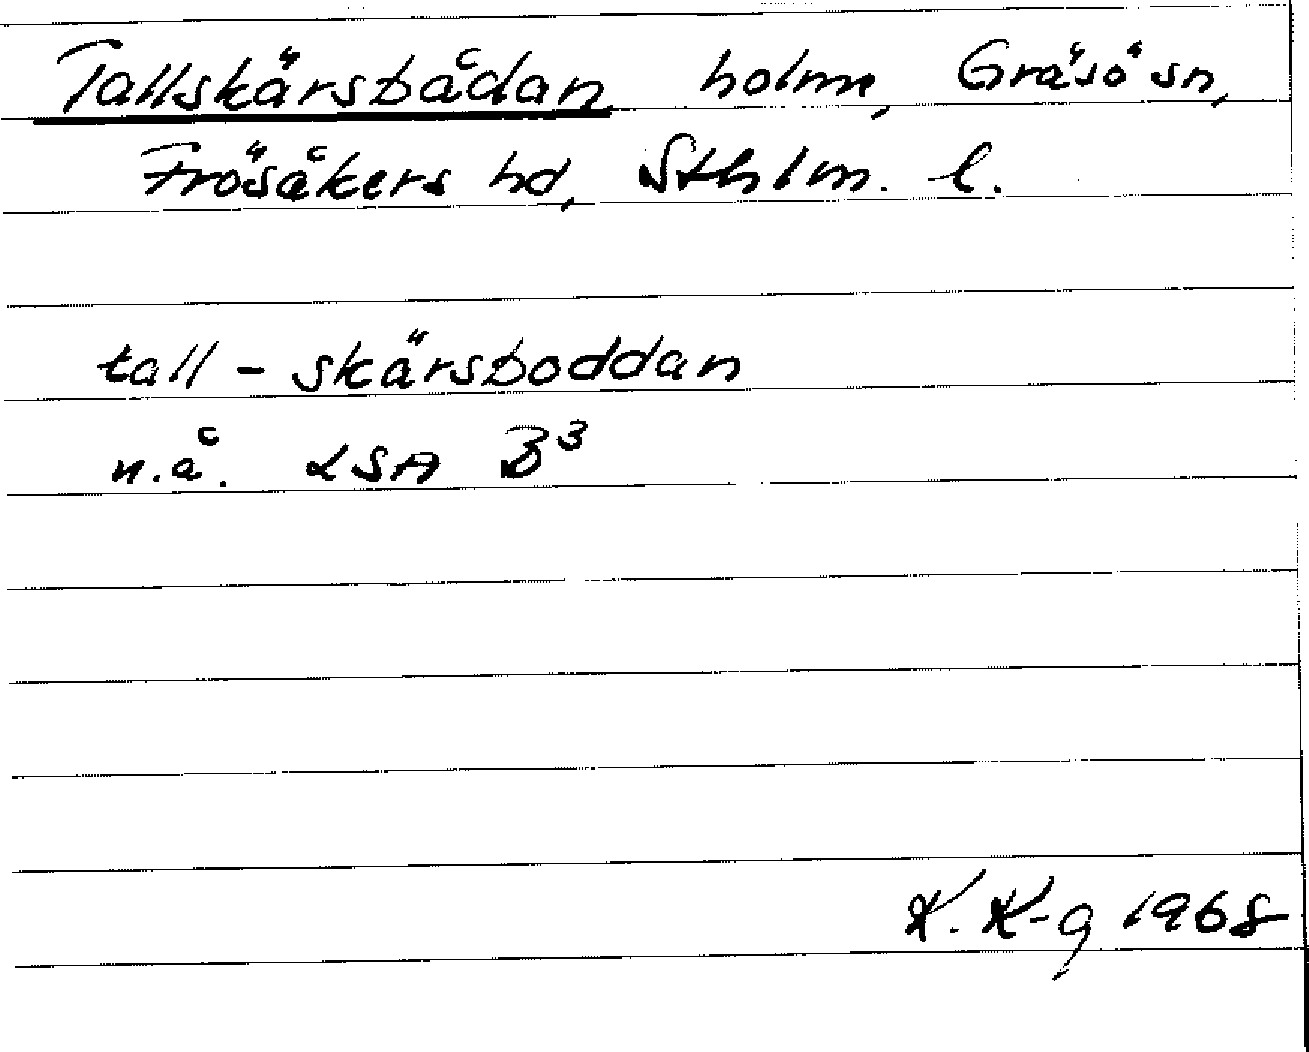 Tallskärsbådan holme, Gräsö sn,
Frösåkers hd, Sthlm. l.
tall - skärsboddan
n.å. LSA B³
K. K-g 1968